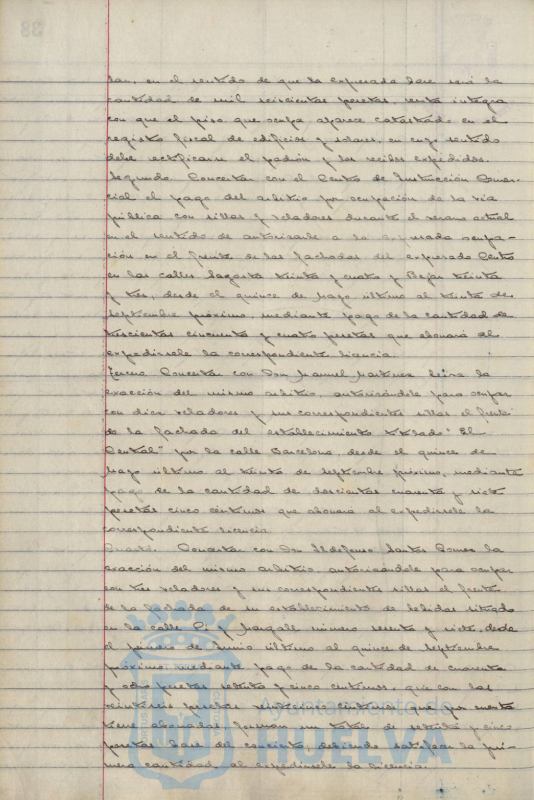 lan, en el sentido de que la expresada base será la
cantidad de mil seiscientas pesetas, renta íntegra
con que el piso que ocupa aparece catastrado en el
registro fiscal de edificios y solares, en cuyo sentido
debe rectificarse el padrón y los recibos expedidos.
Segundo. Concertar con el Centro de Instrucción Comer-
cial el pago del arbitrio por ocupación de la vía
pública con sillas y veladores durante el verano actual
en el sentido de autorizarle a la expresada ocupa-
ción en el frente de las fachadas del expresado Centro
en las calles Sagasta treinta y cuatro y Bejar treinta
y tres, desde el quince de Mayo último al treinta de
septiembre próximo, mediante pago de la cantidad de
trescientas cincuenta y cuatro pesetas que abonará al
expedírsele la correspondiente licencia.
Tercero. Concertar con Don Manuel Martinez la
exacción del mismo arbitrio, autorizándole para ocupar
con diez veladores y sus correspondientes sillas el frente
de la fachada del establecimiento titulado "El
Central" por la calle Barcelona, desde el quince de
Mayo último al treinta de septiembre próximo, mediante
pago de la cantidad de doscientas cuarenta y siete
pesetas cinco céntimos que abonará al expedírsele la
correspondiente licencia.
Cuarto. Concertar con Don Ildefonso Santos Gomez la
exacción del mismo arbitrio, autorizándole para ocupar
con tres veladores y sus correspondientes sillas el frente
de la fachada de su establecimiento de bebidas situado
en la calle Pi y Margall número sesenta y siete, desde
el primero de Junio último al quince de septiembre
próximo, mediante pago de la cantidad de cuarenta
y ocho pesetas setenta y cinco céntimos, que con las
veintiseis pesetas céntimos que por cuota
tiene abonadas forman un total de setenta y cinco
pesetas base del concierto, debiendo satisfacer la pri-
mera cantidad al expedírsele la licencia.
38
Ayuntamiento de
HUELVA